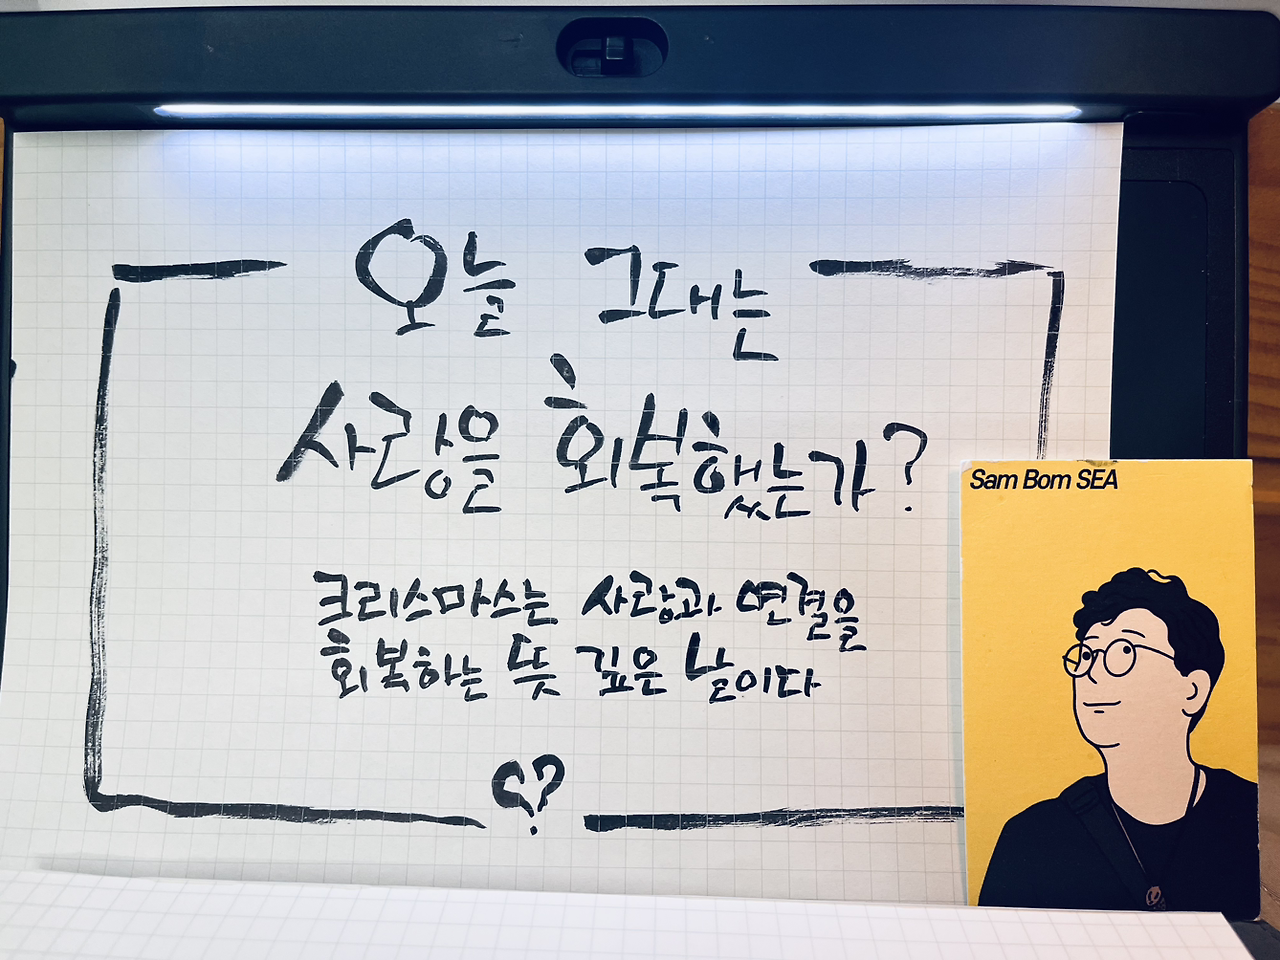 오늘 그대는
사랑을 회복했는가?
크리스마스는 사랑과 연결을
회복하는 뜻 깊은 날이다
Sam Bom SEA